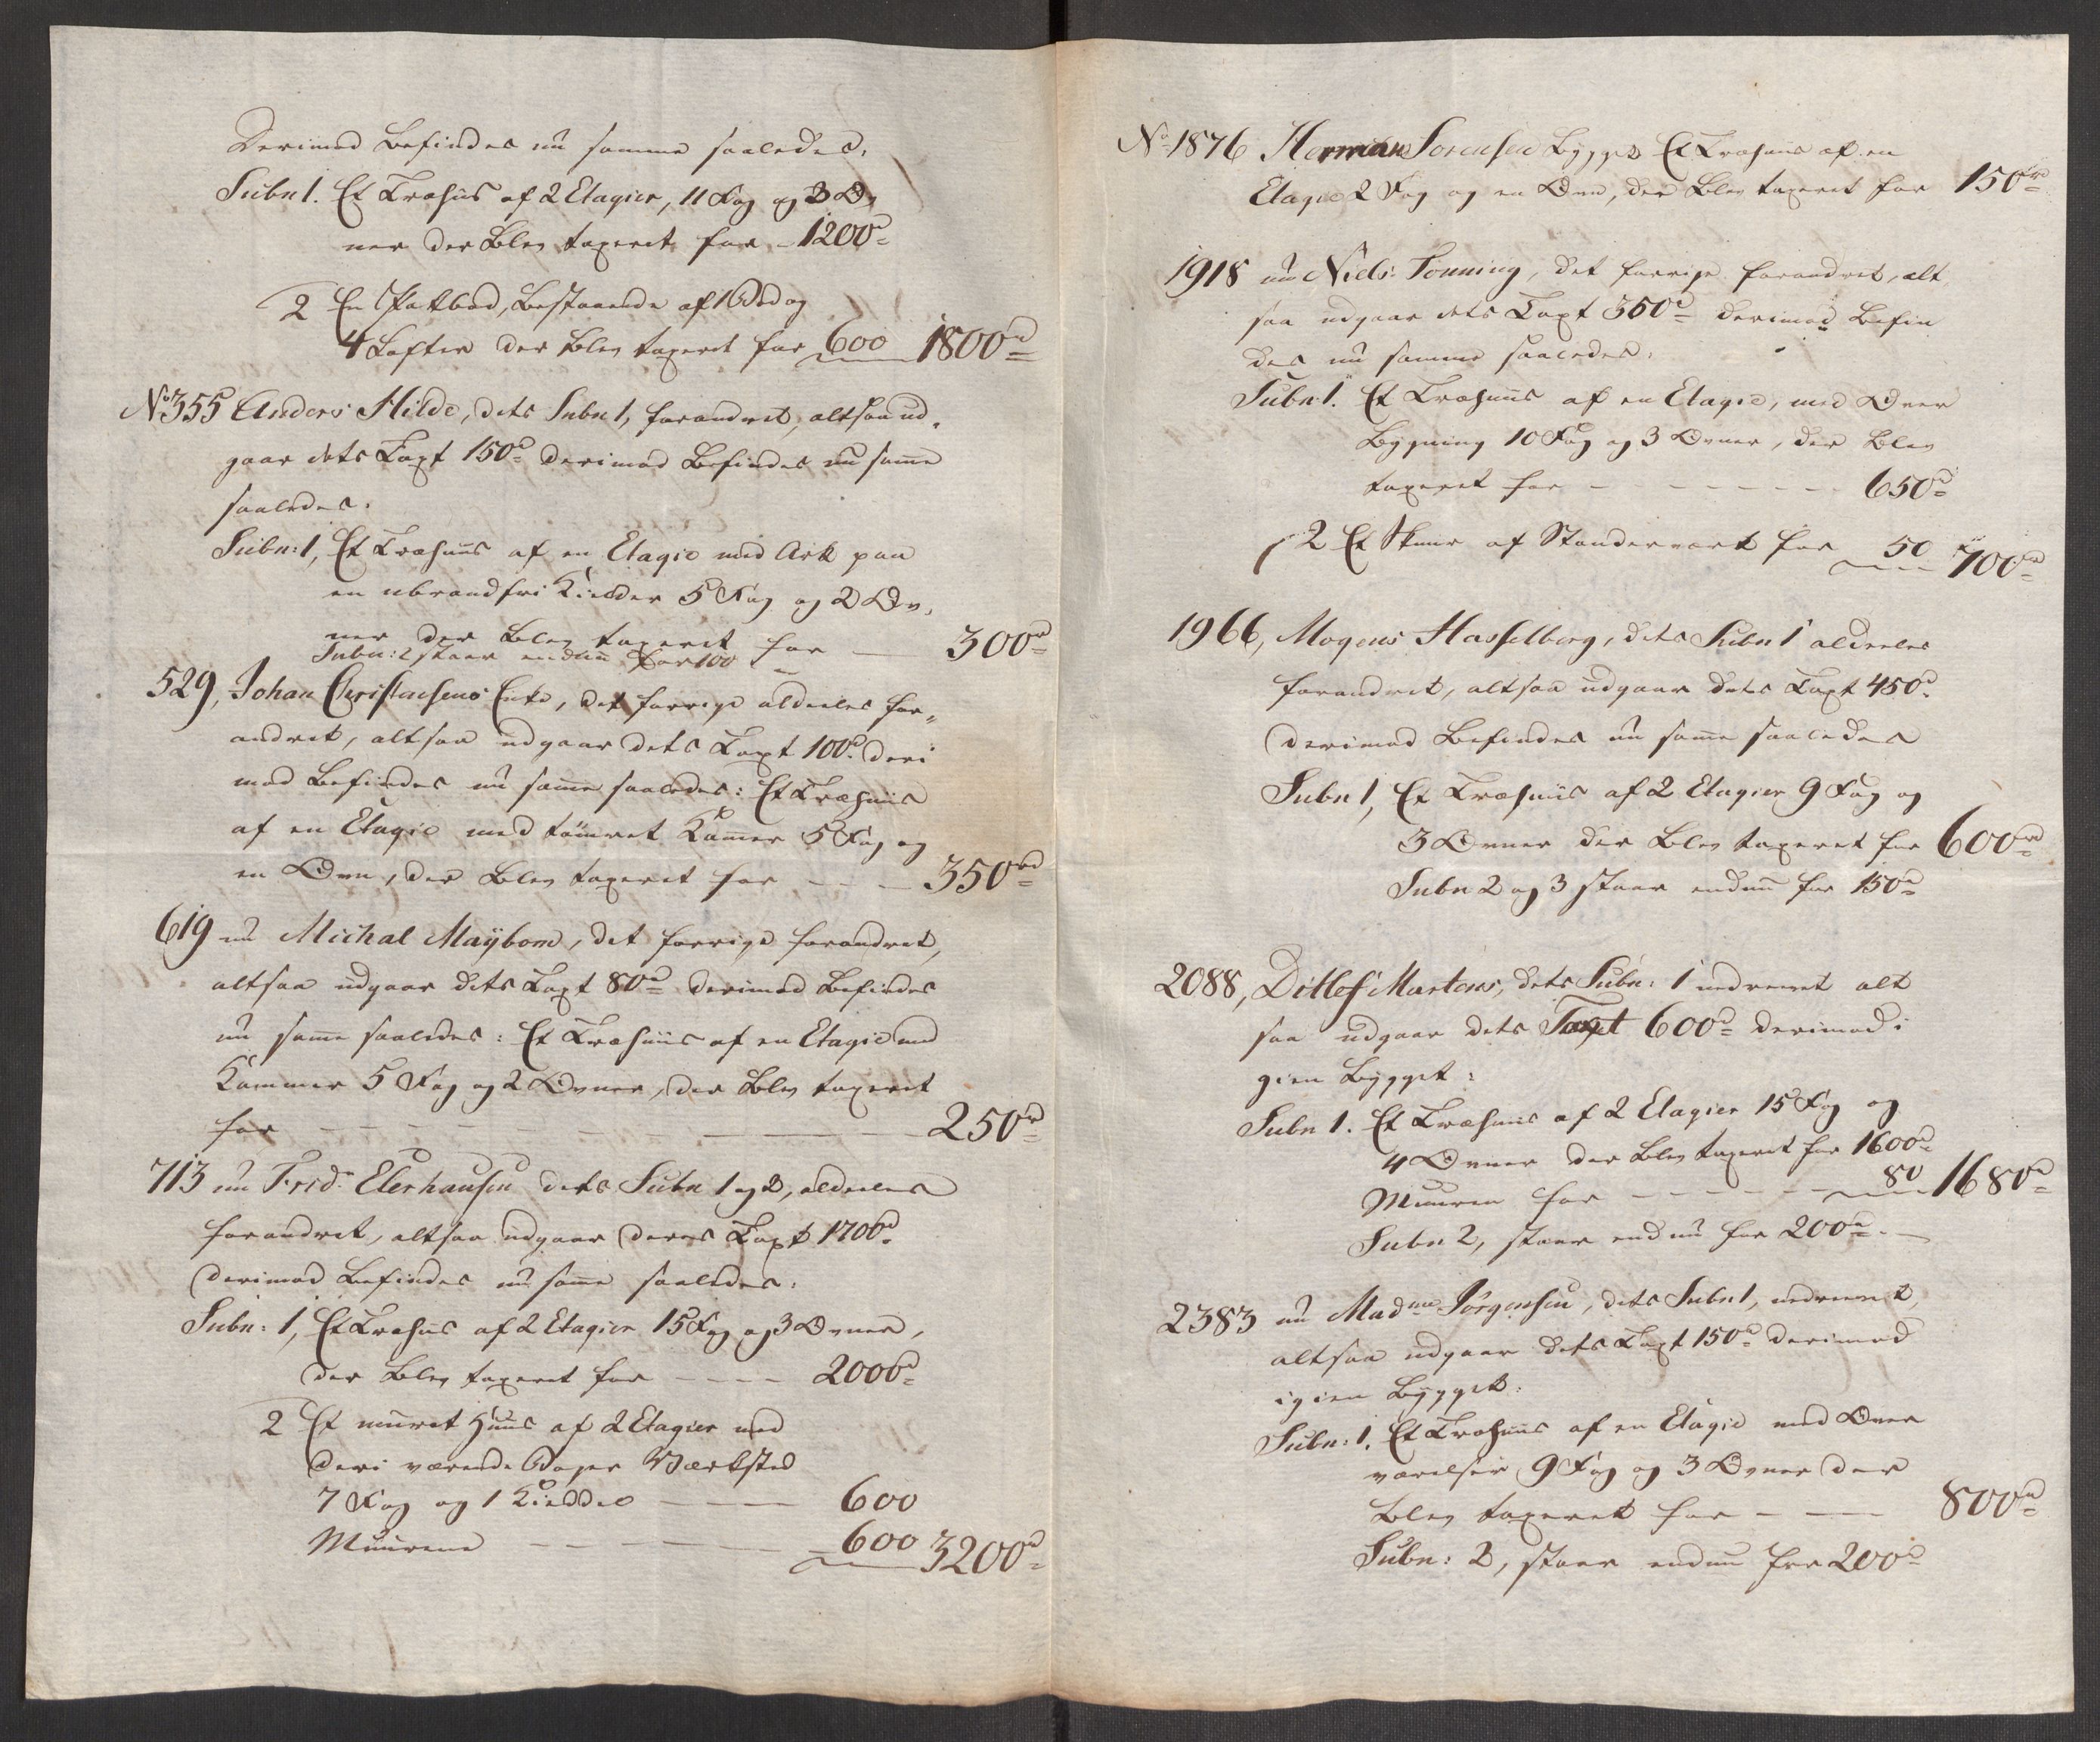 Derimod befindes nu samme saaledes,
Subn 1. Et Træhus af 2 Etagier, 11 Fag og 3 Ov,
ner der blev taxeret for – 1200d
2 En Patbod, bestaaende af 1 Bod og
4 Lofter der blev taxeret for 600 1800d
No 355 Anders Hilde, dets Subn 1, forandret, altsaa ud,
gaar dets Taxt 150d derimod befindes nu samme
saaledes.
Subn: 1, Et Træhuus af en Etagie med Ark paa
en ubrandfri Kielder 5 Fag og 2 Ov,
ner der blev taxeret for — 300d
Subn: 2 staar endnu for 100
529, Johan Christensens Enke, det forrige aldeeles for,,
andret, altsaa udgaar dets Taxt 100d. deri
mod befindes nu samme saaledes: Et Træhuus
af en Etagie med tømret Kamer 5 Fag og
en Ovn, der blev taxeret for – – – 350rd
619 nu Michal Maÿbom, det forrige forandret,
altsaa udgaar dets Taxt 80d derimod befindes
nu samme saaledes: Et Træhuus af en Etagie med
Kammer 5 Fag og 2 Ovner, der blev taxeret
for – – – – – – – 250rd
713 nu Frid: Elerhausen dets Subn 1 og 2, aldeeles
forandret, altsaa udgaar deres Taxt 1700d
derimod befindes nu samme saaledes:
Subn: 1, Et Træhus af 2 Etagier 15 Fag og 3 Ovner,
der blev taxeret for – – – – 2000d
2 Et muuret Huus af 2 Etagier med
deri værende Bager Værksted
7 Fag og 1 Kielder – – – 600
Muurene – – – – – 600 3200d
No 1876 Herman Sorensen bygget Et Træhuus af en
Etagie 2 Fag og en Ovn, der blev taxeret for 150rd
1918 nu Niels Tønning, det forrige forandret, alt
saa udgaar dets Taxt 350d derimod befin
des nu samme saaledes.
Subn: 1. Et Træhuus af en Etagie, med Over
bygning 10 Fag og 3 Ovner, der blev
taxeret for – – – – – – – 650d
2 Et Skuur af Standerværk for 50 700rd
1966, Mogens Hasselberg, dets Subn 1 aldeeles
forandret, altsaa udgaar dets Taxt 450d
derimod befindes nu samme saaledes
Subn 1, Et Træhuus af 2 Etagier 9 Fag og
3 Ovner der blev taxeret for 600rd
Subn 2 og 3 staar endnu for 150d
2088, Ditlef Martens, dets Subn: 1 nedrevet alt
saa udgaar dets Taxt 600d derimod i
gien bygget:
Subn 1. Et Træhuus af 2 Etagier 15 Fag og
4 Ovner der blev taxeret for 1600d
Muuren for – – – – – – 80 1680d
Subn 2, staar endnu for 200d. –
2383 nu Madme Jörgensen, dets Subn 1, nedrevet,
altsaa udgaar dets Taxt 150d derimod
igien bygget:
Subn: 1. Et Træhuus af en Etagie med Over
værelser 9 Fag og 3 Ovner der
blev taxeret for – – – 800d
Subn: 2, staar endnu for 200d